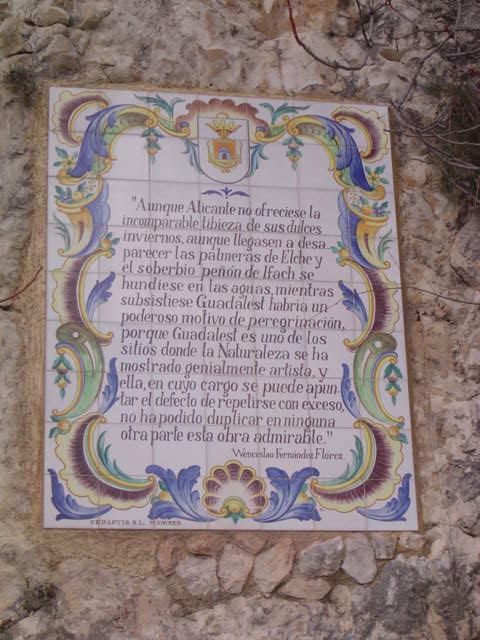 "Aunque Alicante no ofreciese la
incomparable tibieza de sus dulces
inviernos, aunque llegasen a desa-
parecer las palmeras de Elche y
el soberbio peñón de Ifach se
hundiese en las aguas, mientras
subsistiese Guadalest habría un
poderoso motivo de peregrinación,
porque Guadalest es uno de los
sitios donde la Naturaleza se ha
mostrado genialmente artista, y
ella, en cuyo cargo se puede apun-
tar el defecto de repetirse con exceso,
no ha podido duplicar en ninguna
otra parte esta obra admirable."
Wenceslao Fernández Flórez
CEDARTIS S.L. MANISES